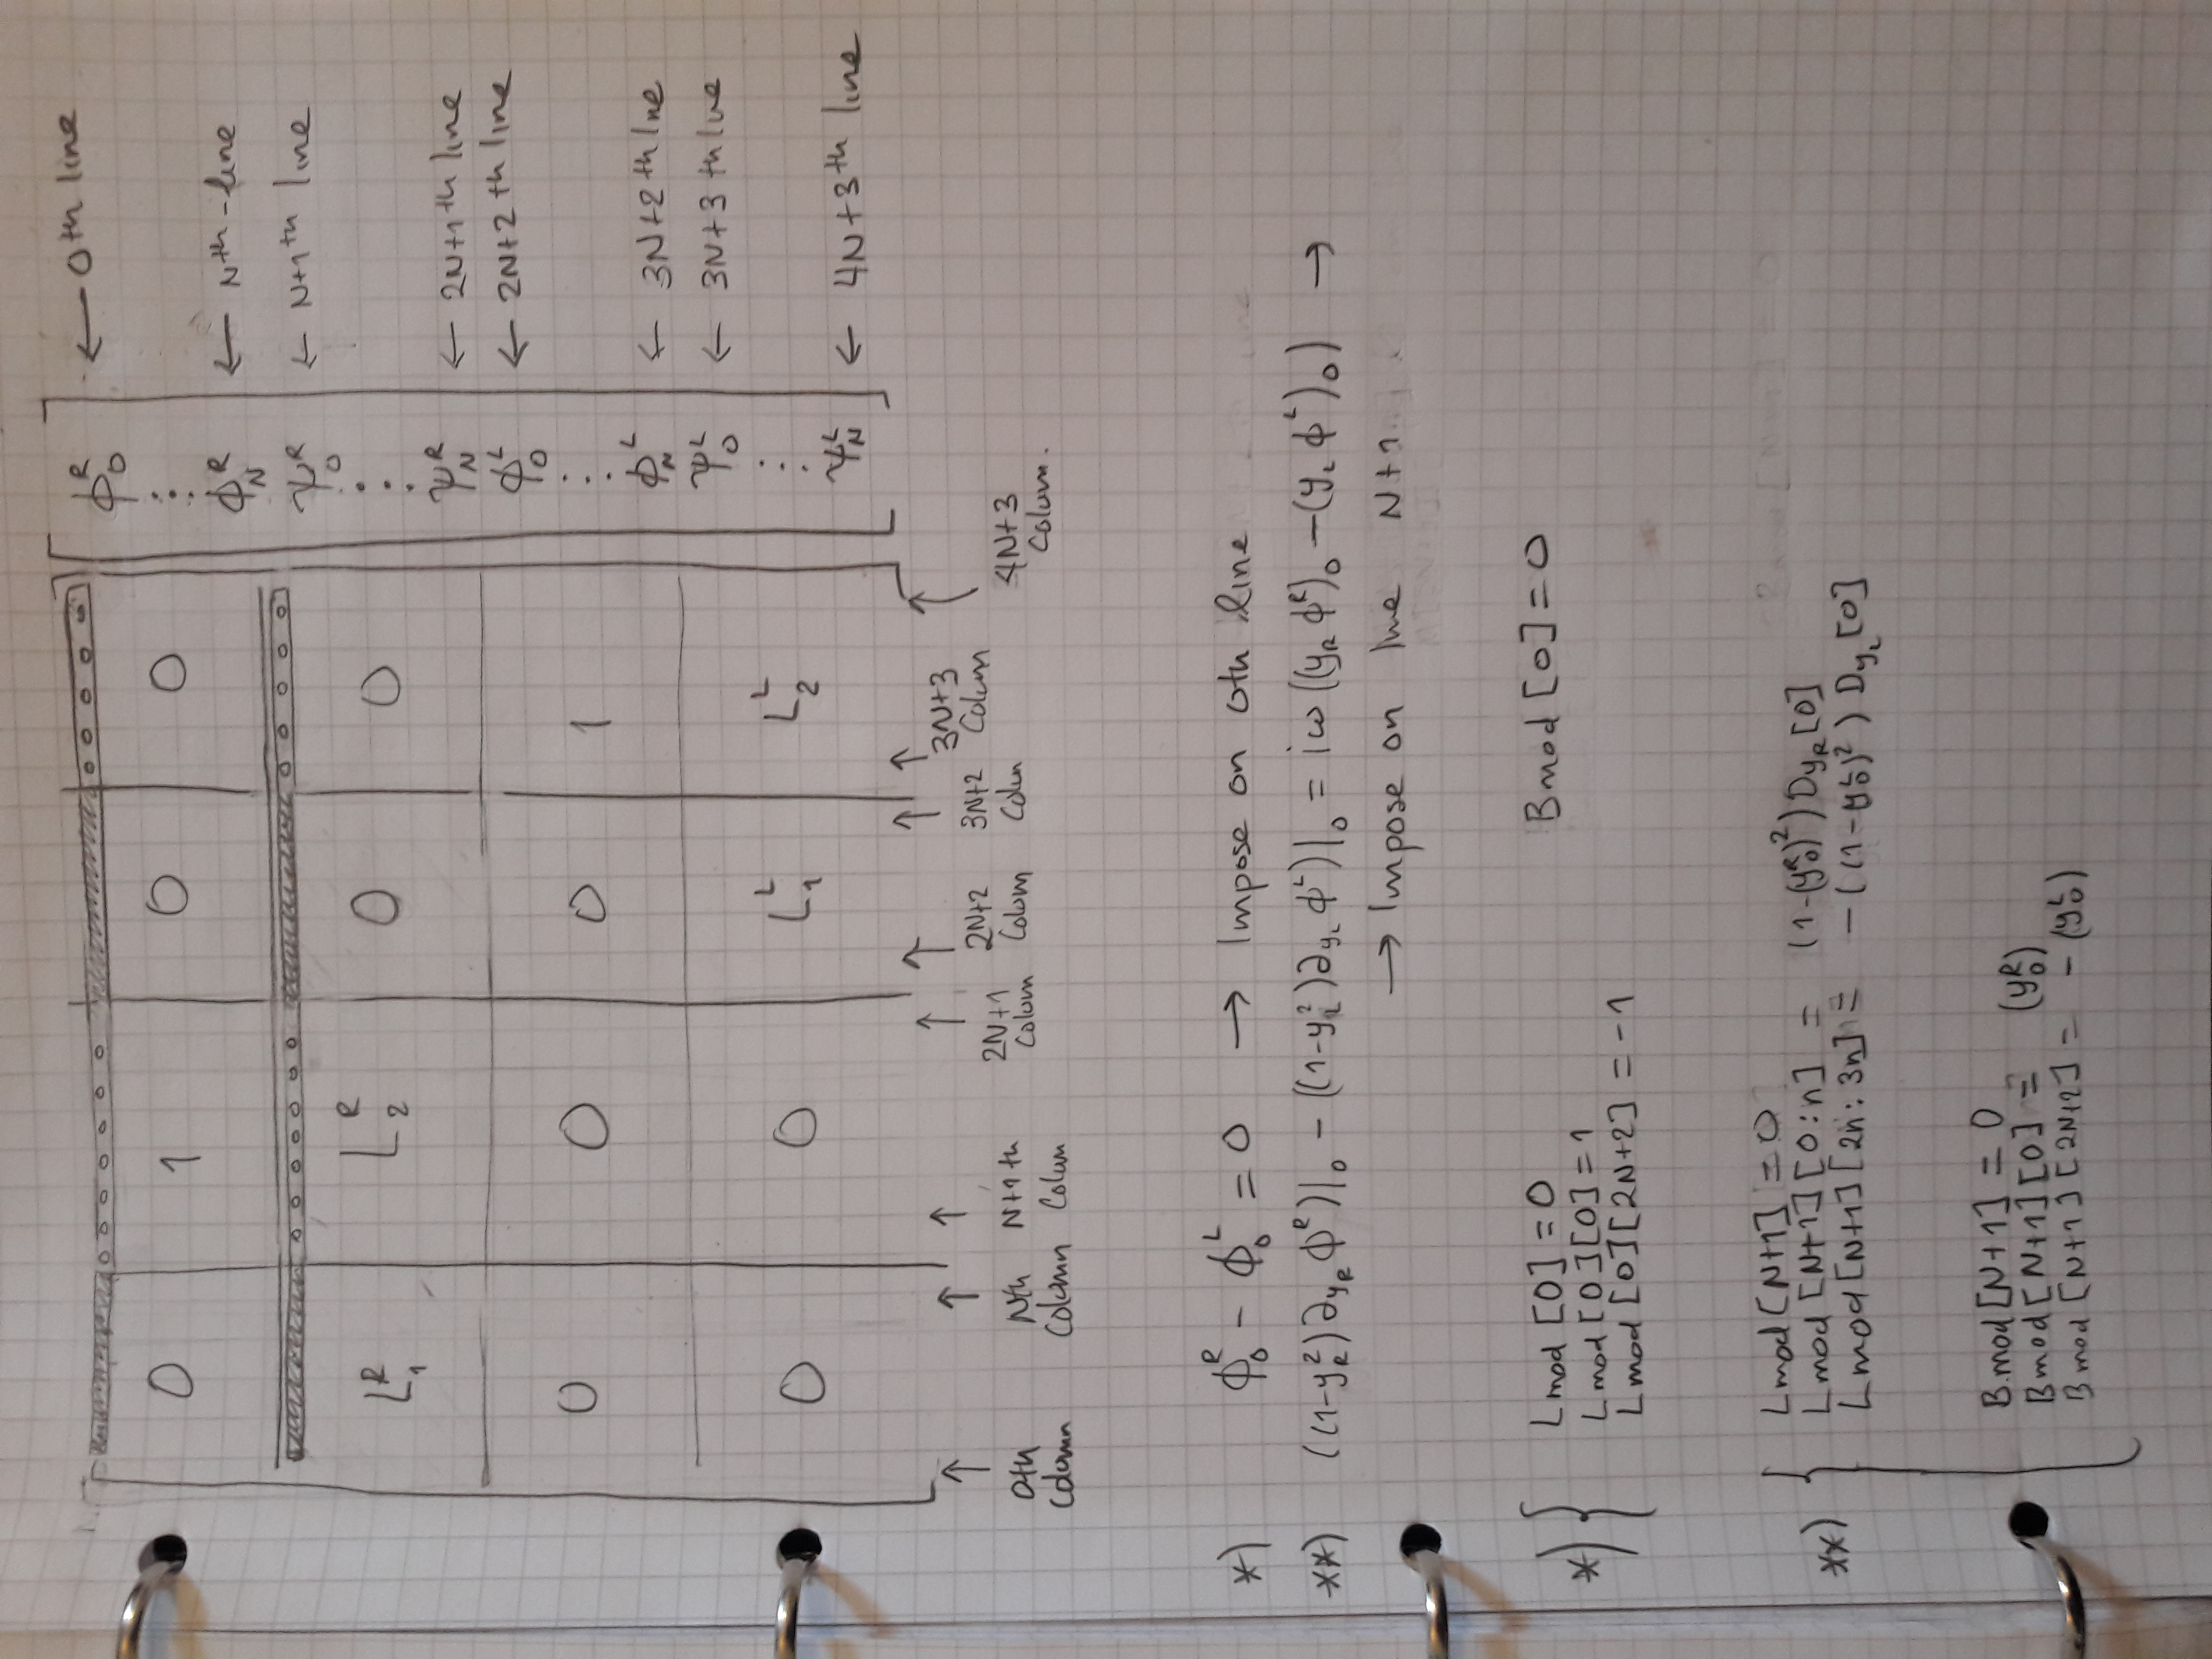 ϕ₀ᴿ ← 0th line
0 1 0 0
⋮
ϕ_N^R ← Nth-line
ψ₀ᴿ ← N+1th line
L₁ᴿ L₂ᴿ 0 0
⋮
ψ_N^R ← 2N+1th line
ϕ₀ᴸ ← 2N+2th line
0 0 0 1
⋮
ϕ_N^L ← 3N+2th lne
ψ₀ᴸ ← 3N+3th lne
0 0 L₁ᴸ L₂ᴸ
⋮
ψ_N^L ← 4N+3th line
↑ ↑ ↑ ↑ ↑ ↑ ↑ ↑
0th Column
Nth Column
N+1th Colum
2N+1 Colum
2N+2 Colum
3N+2 Colum
3N+3 Colum
4N+3 Colum.
*) ϕ₀ᴿ - ϕ₀ᴸ = 0 → Impose on 0th line
**) ((1-y_R²)∂_{y_R} ϕᴿ)|₀ - ((1-y_L²)∂_{y_L} ϕᴸ)|₀ = iω((y_R ϕᴿ)₀ - (y_L ϕᴸ)₀) →
→ Impose on lne N+1
*) { Lmod [0] = 0 Bmod [0] = 0
Lmod [0][0] = 1
Lmod [0][2N+2] = -1
**) { Lmod [N+1] = 0
Lmod [N+1][0:n] = (1-(y₀ᴿ)²) D_{y_R}[0]
Lmod [N+1][2n:3n] = -((1-(y₀ᴸ)²) D_{y_L}[0]
B.mod [N+1] = 0
Bmod [N+1][0] = (y₀ᴿ)
Bmod [N+1][2N+2] = -(y₀ᴸ)